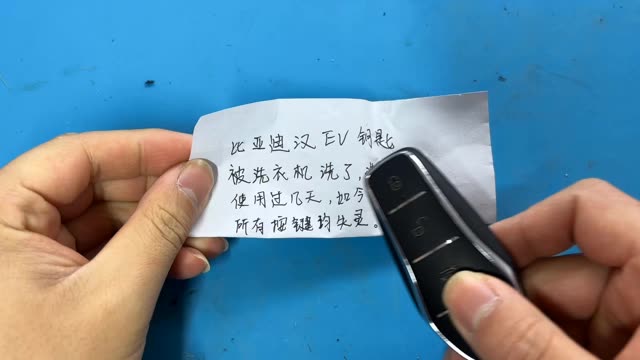 比亚迪汉EV钥匙
被洗衣机洗了，
使用过几天，如今
所有按键均失灵。